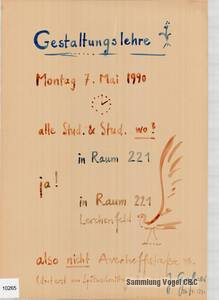 Gestaltungslehre
Montag 7. Mai 1990
alle Stud. & Stud. wo?
in Raum 221
ja!
in Raum 221
Lerchenfeld 2
also nicht Averhoffstraße
10265
Sammlung Vogel C&C